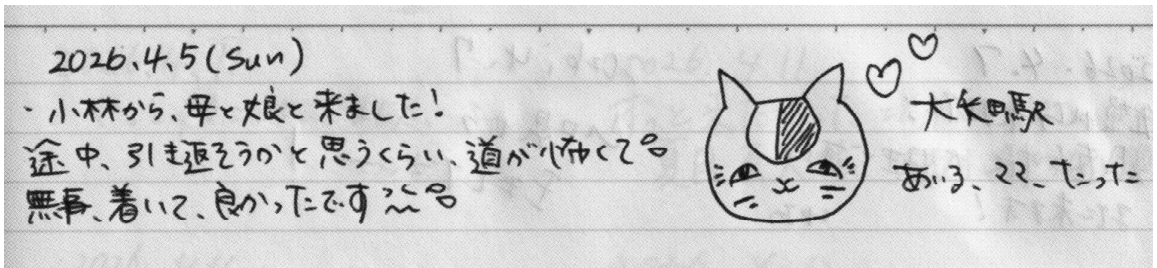 2026.4.5(Sun)
・小林から、母と娘と来ました!
途中、引き返そうかと思うくらい、道が怖くて。
無事、着いて、良かったです
大矢田駅
あいる、22、たった